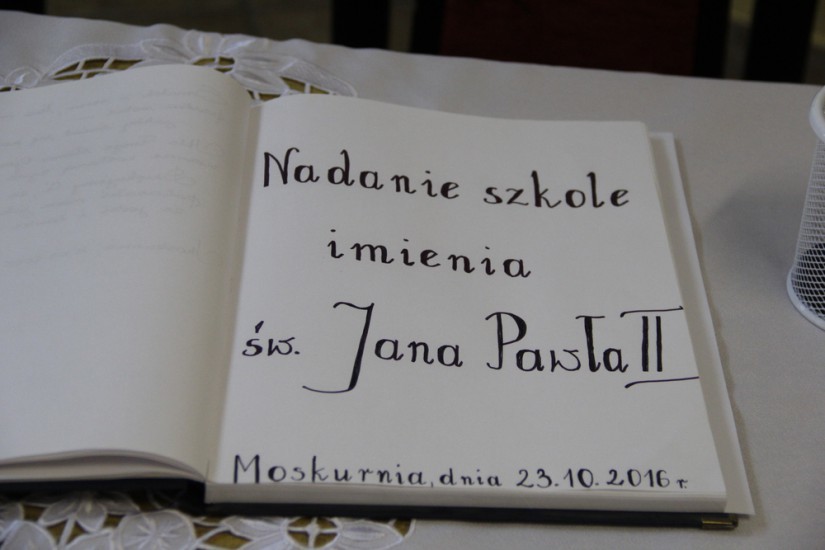 Nadanie szkole
imienia
św. Jana Pawła II
Moskurnia, dnia 23.10.2016 r.